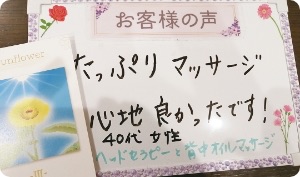 お客様の声
unflower
たっぷり マッサージ
心地 良かったです!
40代 女性
ヘッドセラピーと背中オイルマッサージ